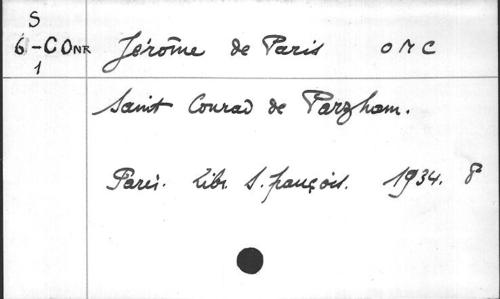 S
6-CONR Jérôme de Paris OMC
1
Saint Conrad de Parzham.
Paris. Libr. S. François. 1934. 8°